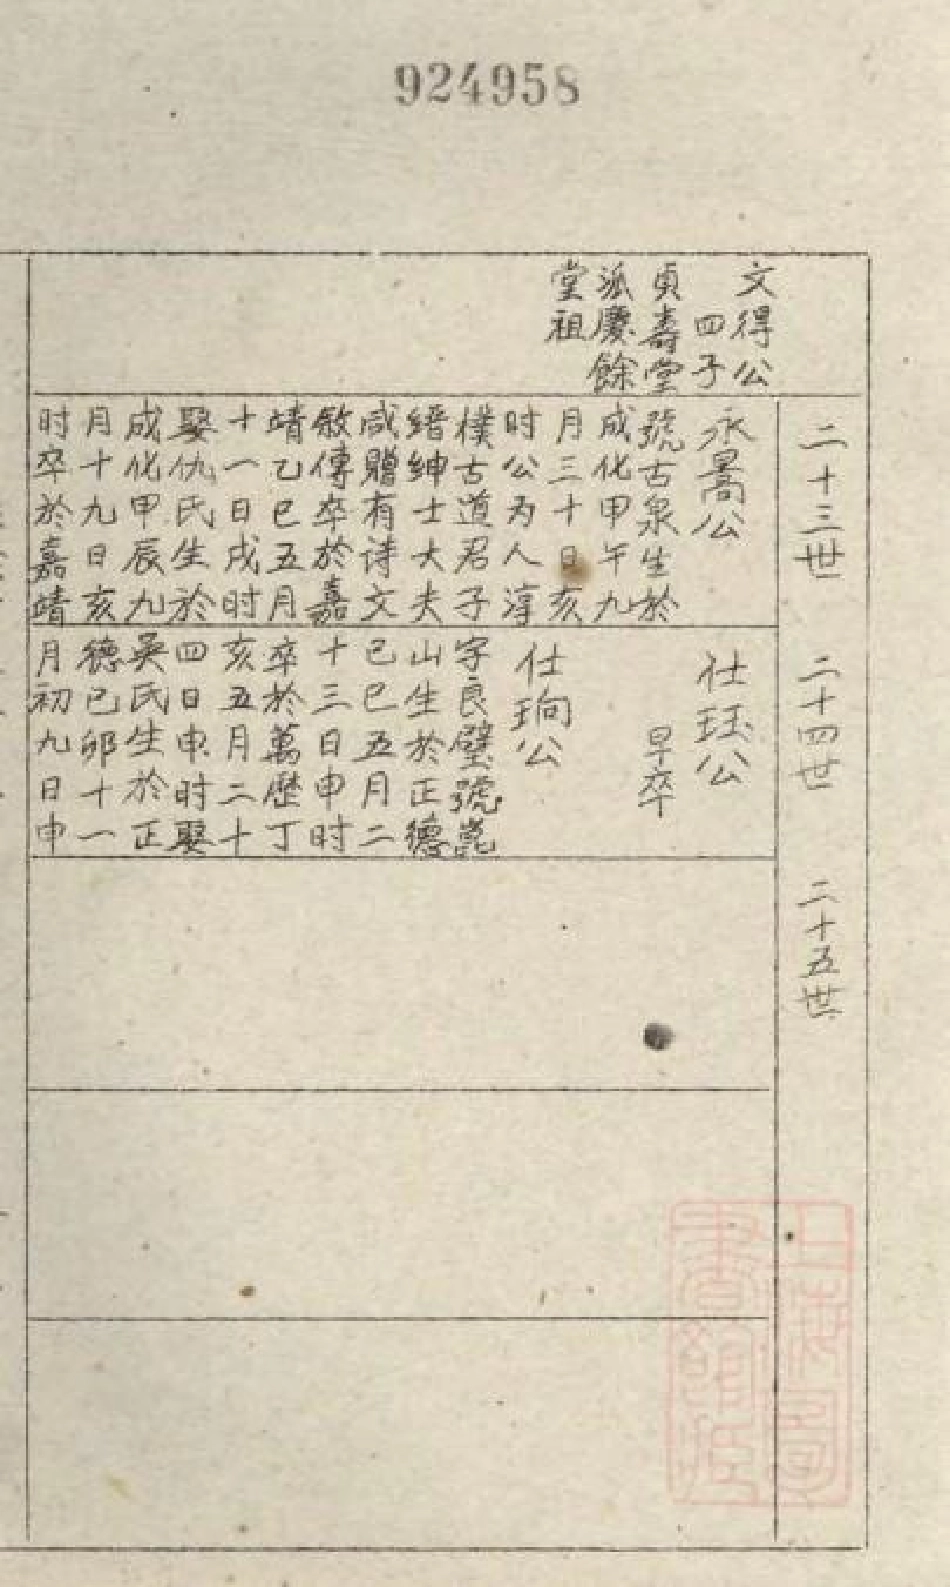 924958
二十三世
二十四世
二十五世
文得公
四子
貞壽堂
派慶餘
堂祖
永暠公
號古泉生於
成化甲午九
月三十日亥
时公为人淳
樸古道君子
縉紳士大夫
咸贈有诗文
敘傳卒於嘉
靖乙巳五月
十一日戌时
娶仇氏生於
成化甲辰九
月十九日亥
时卒於嘉靖
仕珏公
早卒
仕珦公
字良璧號崑
山生於正德
己巳五月二
十三日申时
卒於萬歷丁
亥五月二十
四日申时娶
吳氏生於正
德己卯十一
月初九日申
上海圖
書館藏